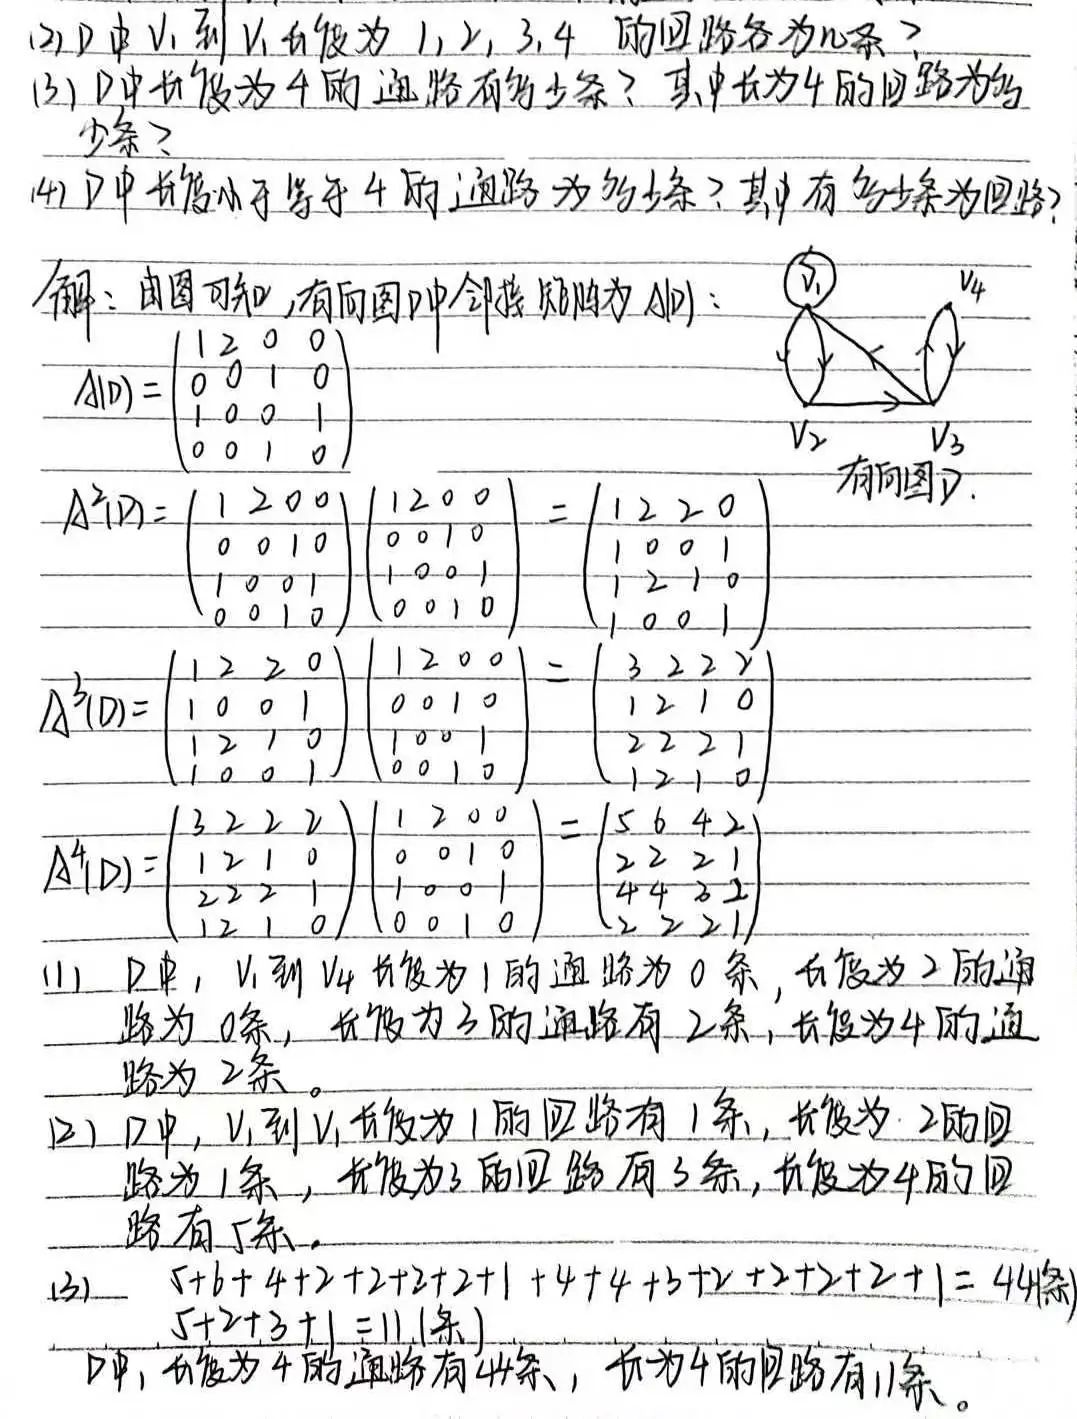 (2) D中V₁到V₁长度为1,2,3,4 的回路各为几条?
(3) D中长度为4的通路有多少条? 其中长为4的回路为多
少条?
(4) D中长度小于等于4的通路为多少条? 其中有多少条为回路?
解: 由图可知,有向图D中邻接矩阵为A(D):
V₁ V₄
V₂ V₃
有向图D.
A(D) =
1 2 0 0
0 0 1 0
1 0 0 1
0 0 1 0
A²(D) =
1 2 0 0 1 2 0 0 = 1 2 2 0
0 0 1 0 0 0 1 0 1 0 0 1
1 0 0 1 1 0 0 1 1 2 1 0
0 0 1 0 0 0 1 0 1 0 0 1
A³(D) =
1 2 2 0 1 2 0 0 = 3 2 2 2
1 0 0 1 0 0 1 0 1 2 1 0
1 2 1 0 1 0 0 1 2 2 2 1
1 0 0 1 0 0 1 0 1 2 1 0
A⁴(D) =
3 2 2 2 1 2 0 0 = 5 6 4 2
1 2 1 0 0 0 1 0 2 2 2 1
2 2 2 1 1 0 0 1 4 4 3 2
1 2 1 0 0 0 1 0 2 2 2 1
(1) D中, V₁到V₄长度为1的通路为0条, 长度为2的通
路为0条, 长度为3的通路有2条, 长度为4的通
路为2条。
(2) D中, V₁到V₁长度为1的回路有1条, 长度为2的回
路为1条, 长度为3的回路有3条, 长度为4的回
路有5条。
(3) 5+6+4+2+2+2+2+1+4+4+3+2+2+2+2+1=44(条)
5+2+3+1=11(条)
D中, 长度为4的通路有44条, 长为4的回路有11条。